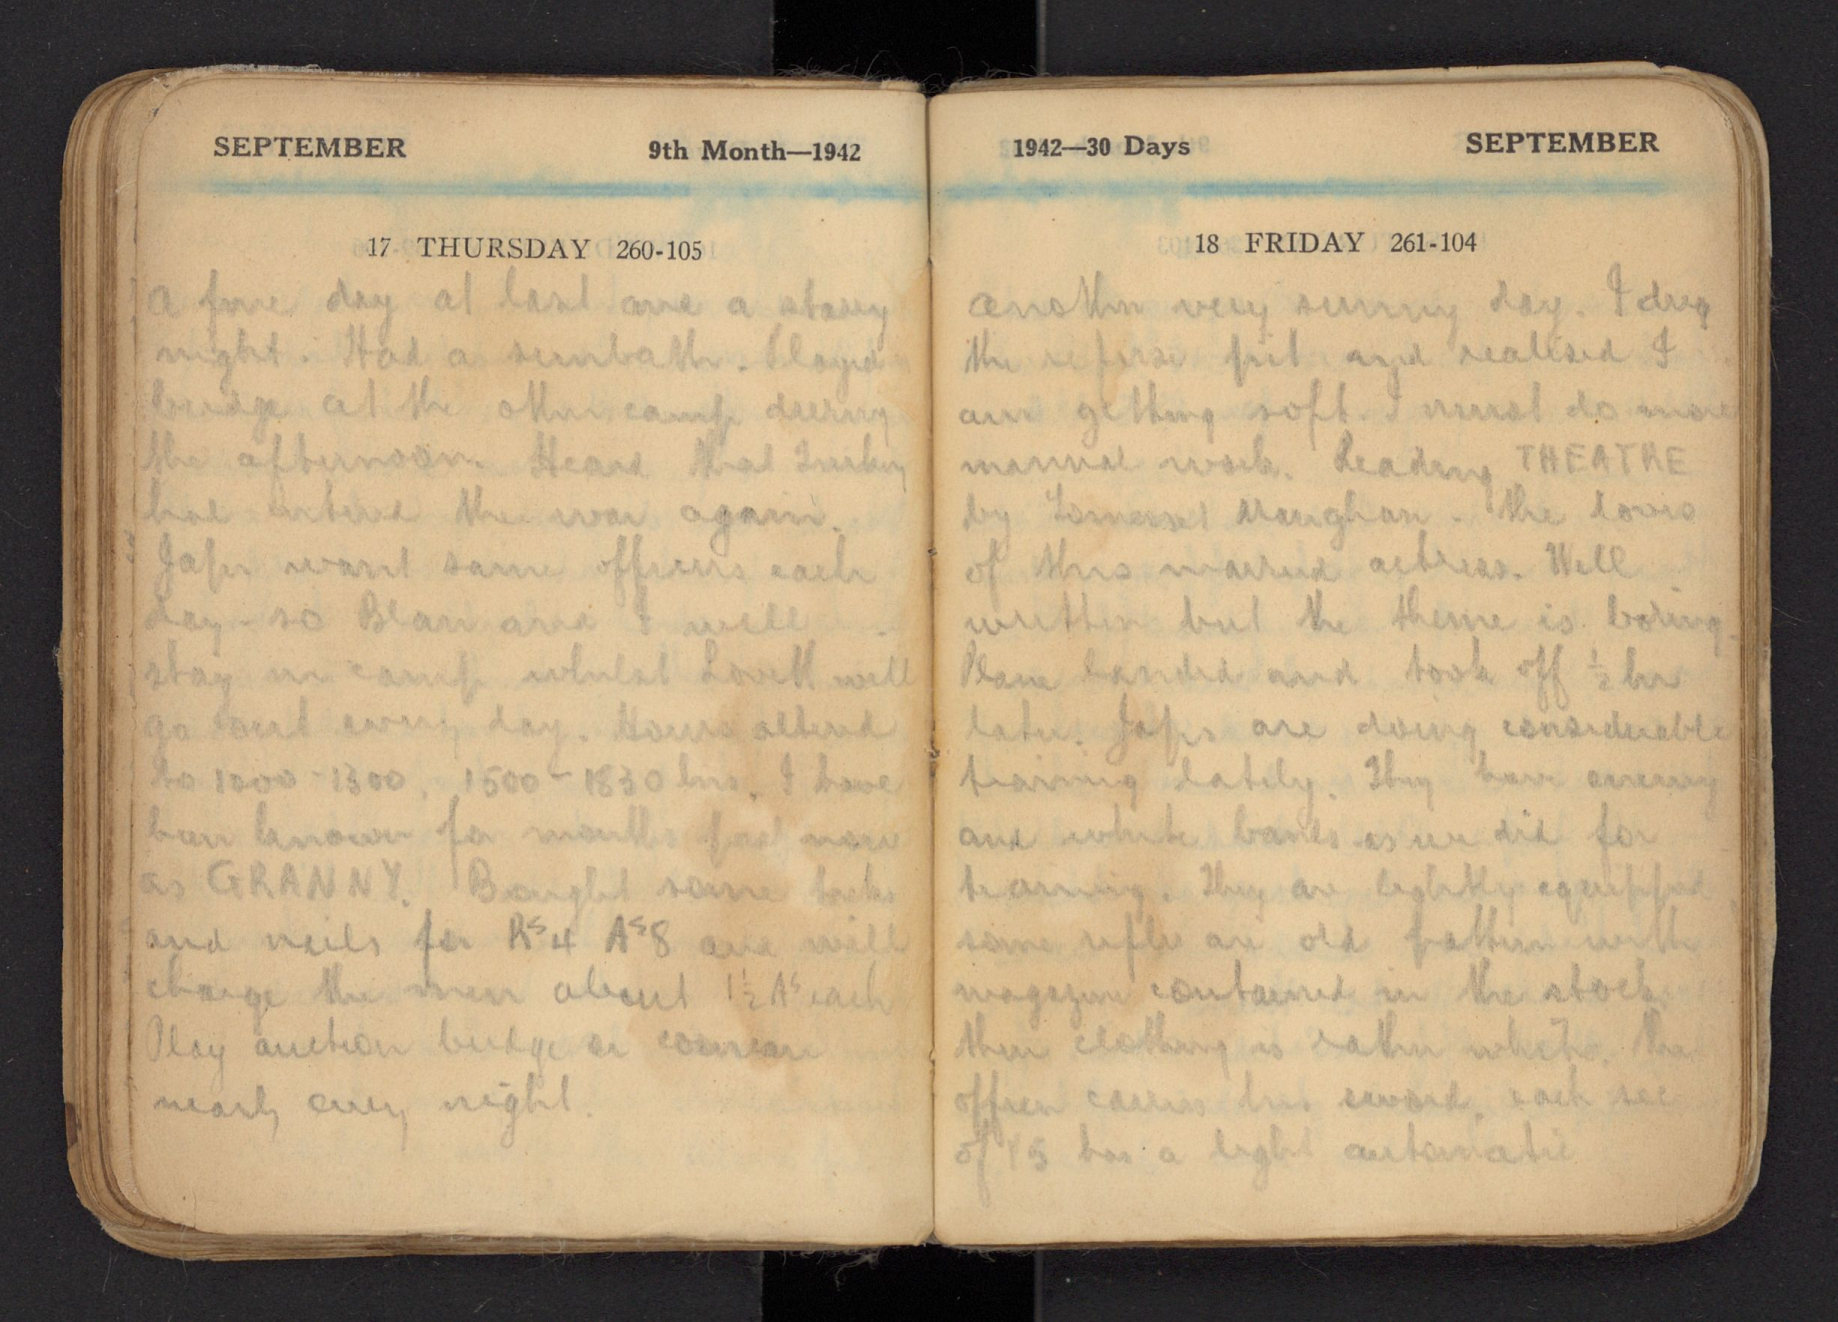 SEPTEMBER 9th Month—1942
17 THURSDAY 260-105
A fine day at last and a starry
night. Had a sunbath. Played
bridge at the other camp during
the afternoon. Heard that Turkey
had entered the war again.
Japs want same officers each
day so Blan and I will
stay in camp whilst Lovett will
go out every day. Hours altered
to 1000-1300, 1500-1830 hrs. I have
been known for months now
as GRANNY. Bought some tacks
and nails for Rs4 As8 and will
charge the men about 1½ As each
Play auction bridge or
nearly every night.
1942—30 Days SEPTEMBER
18 FRIDAY 261-104
Another very sunny day. I dug
the refuse pit and realised I
am getting soft. I must do more
manual work. Reading THEATRE
by Somerset Maugham. The loves
of this married actress. Well
written but the theme is boring.
Plane landed and took off ½ hr
later. Japs are doing considerable
training lately. They have enemy
and white bands as we did for
training. They are lightly equipped
some rifles are old pattern with
magazine contained in the stock.
their clothing is rather white. The
officer carries his sword, each sec
of 15 has a light automatic